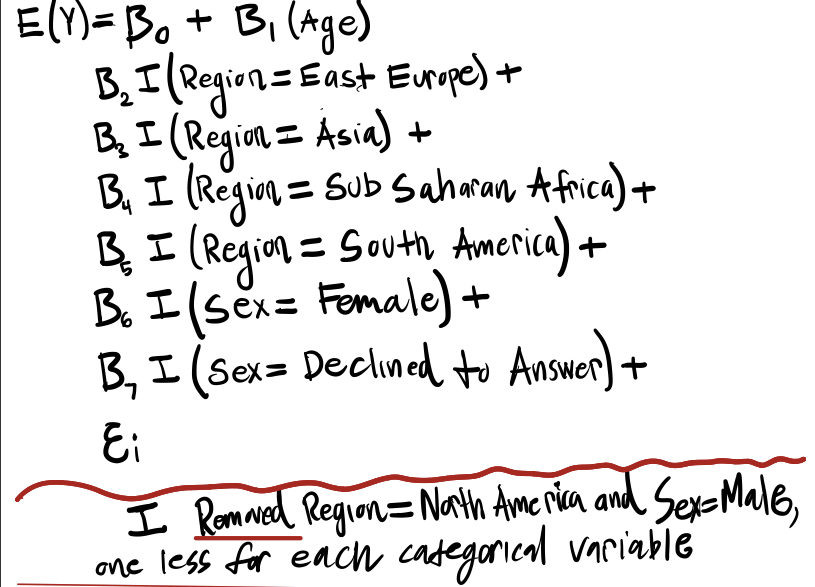 E(Y) = B₀ + B₁ (Age)
B₂ I (Region = East Europe) +
B₃ I (Region = Asia) +
B₄ I (Region = Sub Saharan Africa) +
B₅ I (Region = South America) +
B₆ I (Sex = Female) +
B₇ I (Sex = Declined to Answer) +
εi
I Removed Region = North America and Sex = Male,
one less for each categorical variable